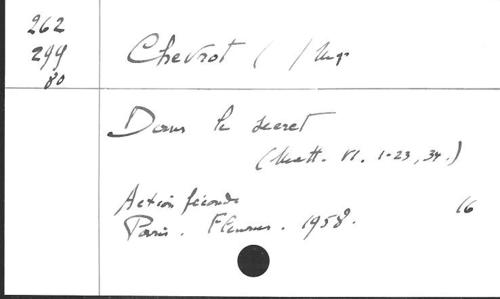 262
299
80
Chevrot ( ) Mgr
Dans le secret
(Matt. VI. 1-23, 34.)
Action féconde
16
Paris. Fleurus. 1958.